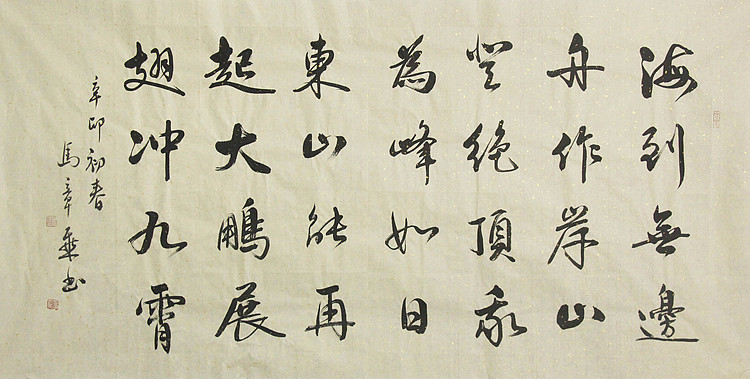 海到無邊
舟作岸山
登绝頂我
為峰如日
東山能再
起大鵬展
翅冲九霄
辛卯初春
馬章乘书